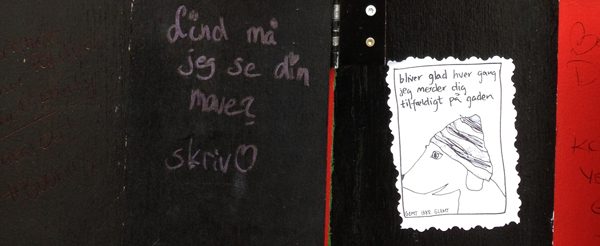 må
jeg se din
mave?
skriv♡
bliver glad hver gang
jeg møder dig
tilfældigt på gaden
GEMT IKKE GLEMT